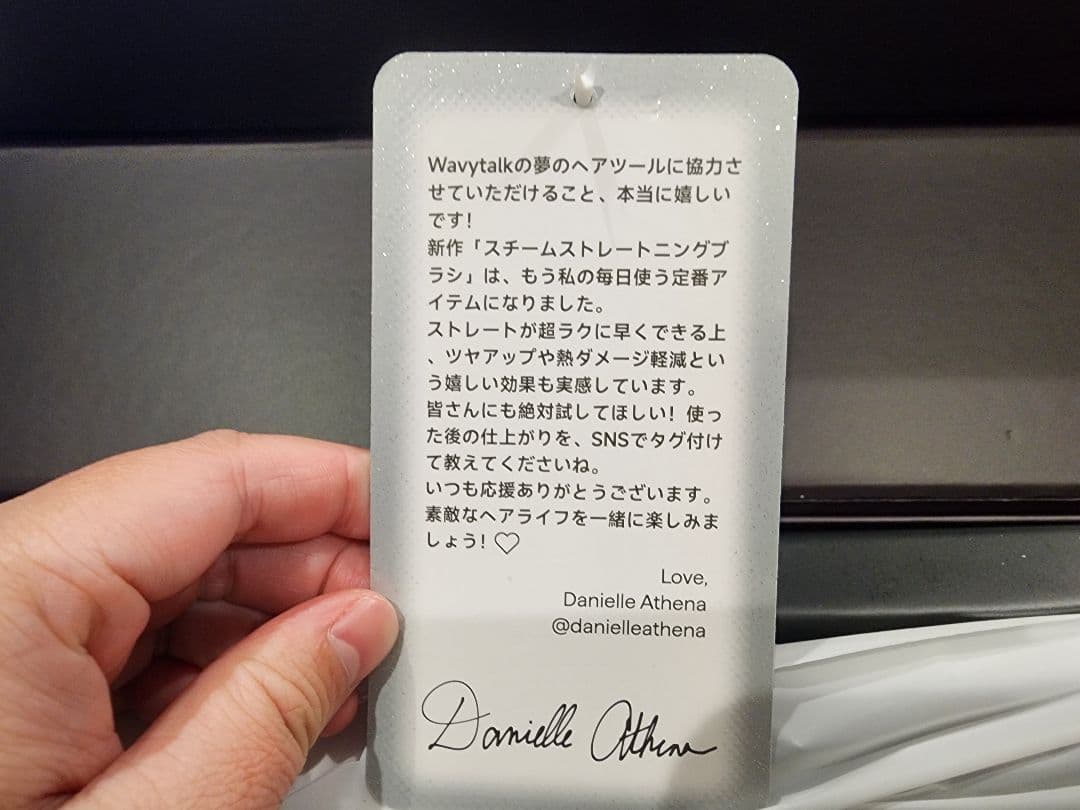 Wavytalkの夢のヘアツールに協力さ
せていただけること、本当に嬉しい
です!
新作「スチームストレートニングブ
ラシ」は、もう私の毎日使う定番ア
イテムになりました。
ストレートが超ラクに早くできる上
、ツヤアップや熱ダメージ軽減とい
う嬉しい効果も実感しています。
皆さんにも絶対試してほしい! 使っ
た後の仕上がりを、SNSでタグ付け
て教えてくださいね。
いつも応援ありがとうございます。
素敵なヘアライフを一緒に楽しみま
しょう! ♡
Love,
Danielle Athena
@danielleathena
Danielle Athena